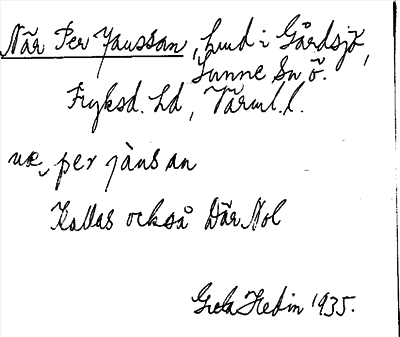 När Per Jansson, Lund i Gårdsjö,
Sunne Sn Ö.
Fryksd. Hd, Värml. l.
næ, per jànsan
Kallas också Där Nol
Greta Hedin 1935.